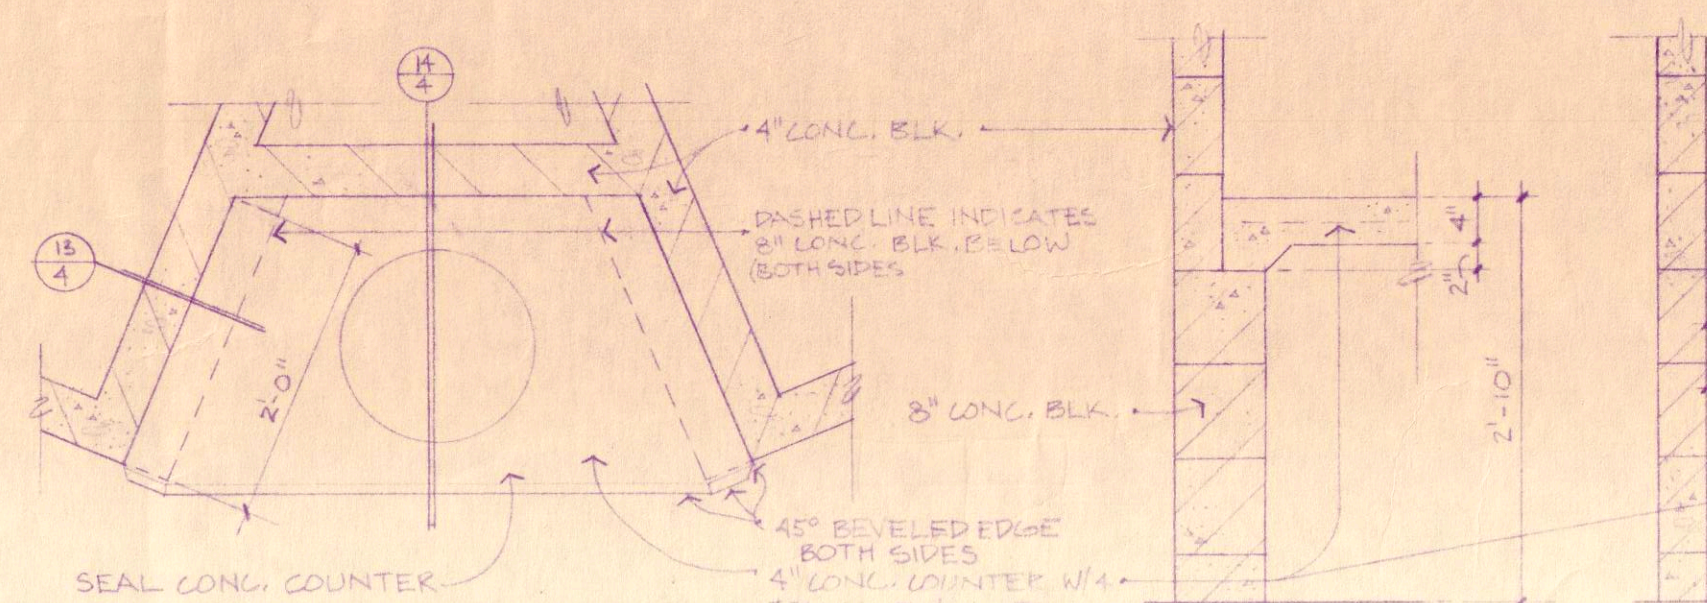 14
4
4" CONC. BLK.
DASHED LINE INDICATES
8" CONC. BLK. BELOW
(BOTH SIDES
13
4
2'-0"
4"
2"
2'-10"
8" CONC. BLK.
45° BEVELED EDGE
BOTH SIDES
SEAL CONC. COUNTER
4" CONC. COUNTER W/4